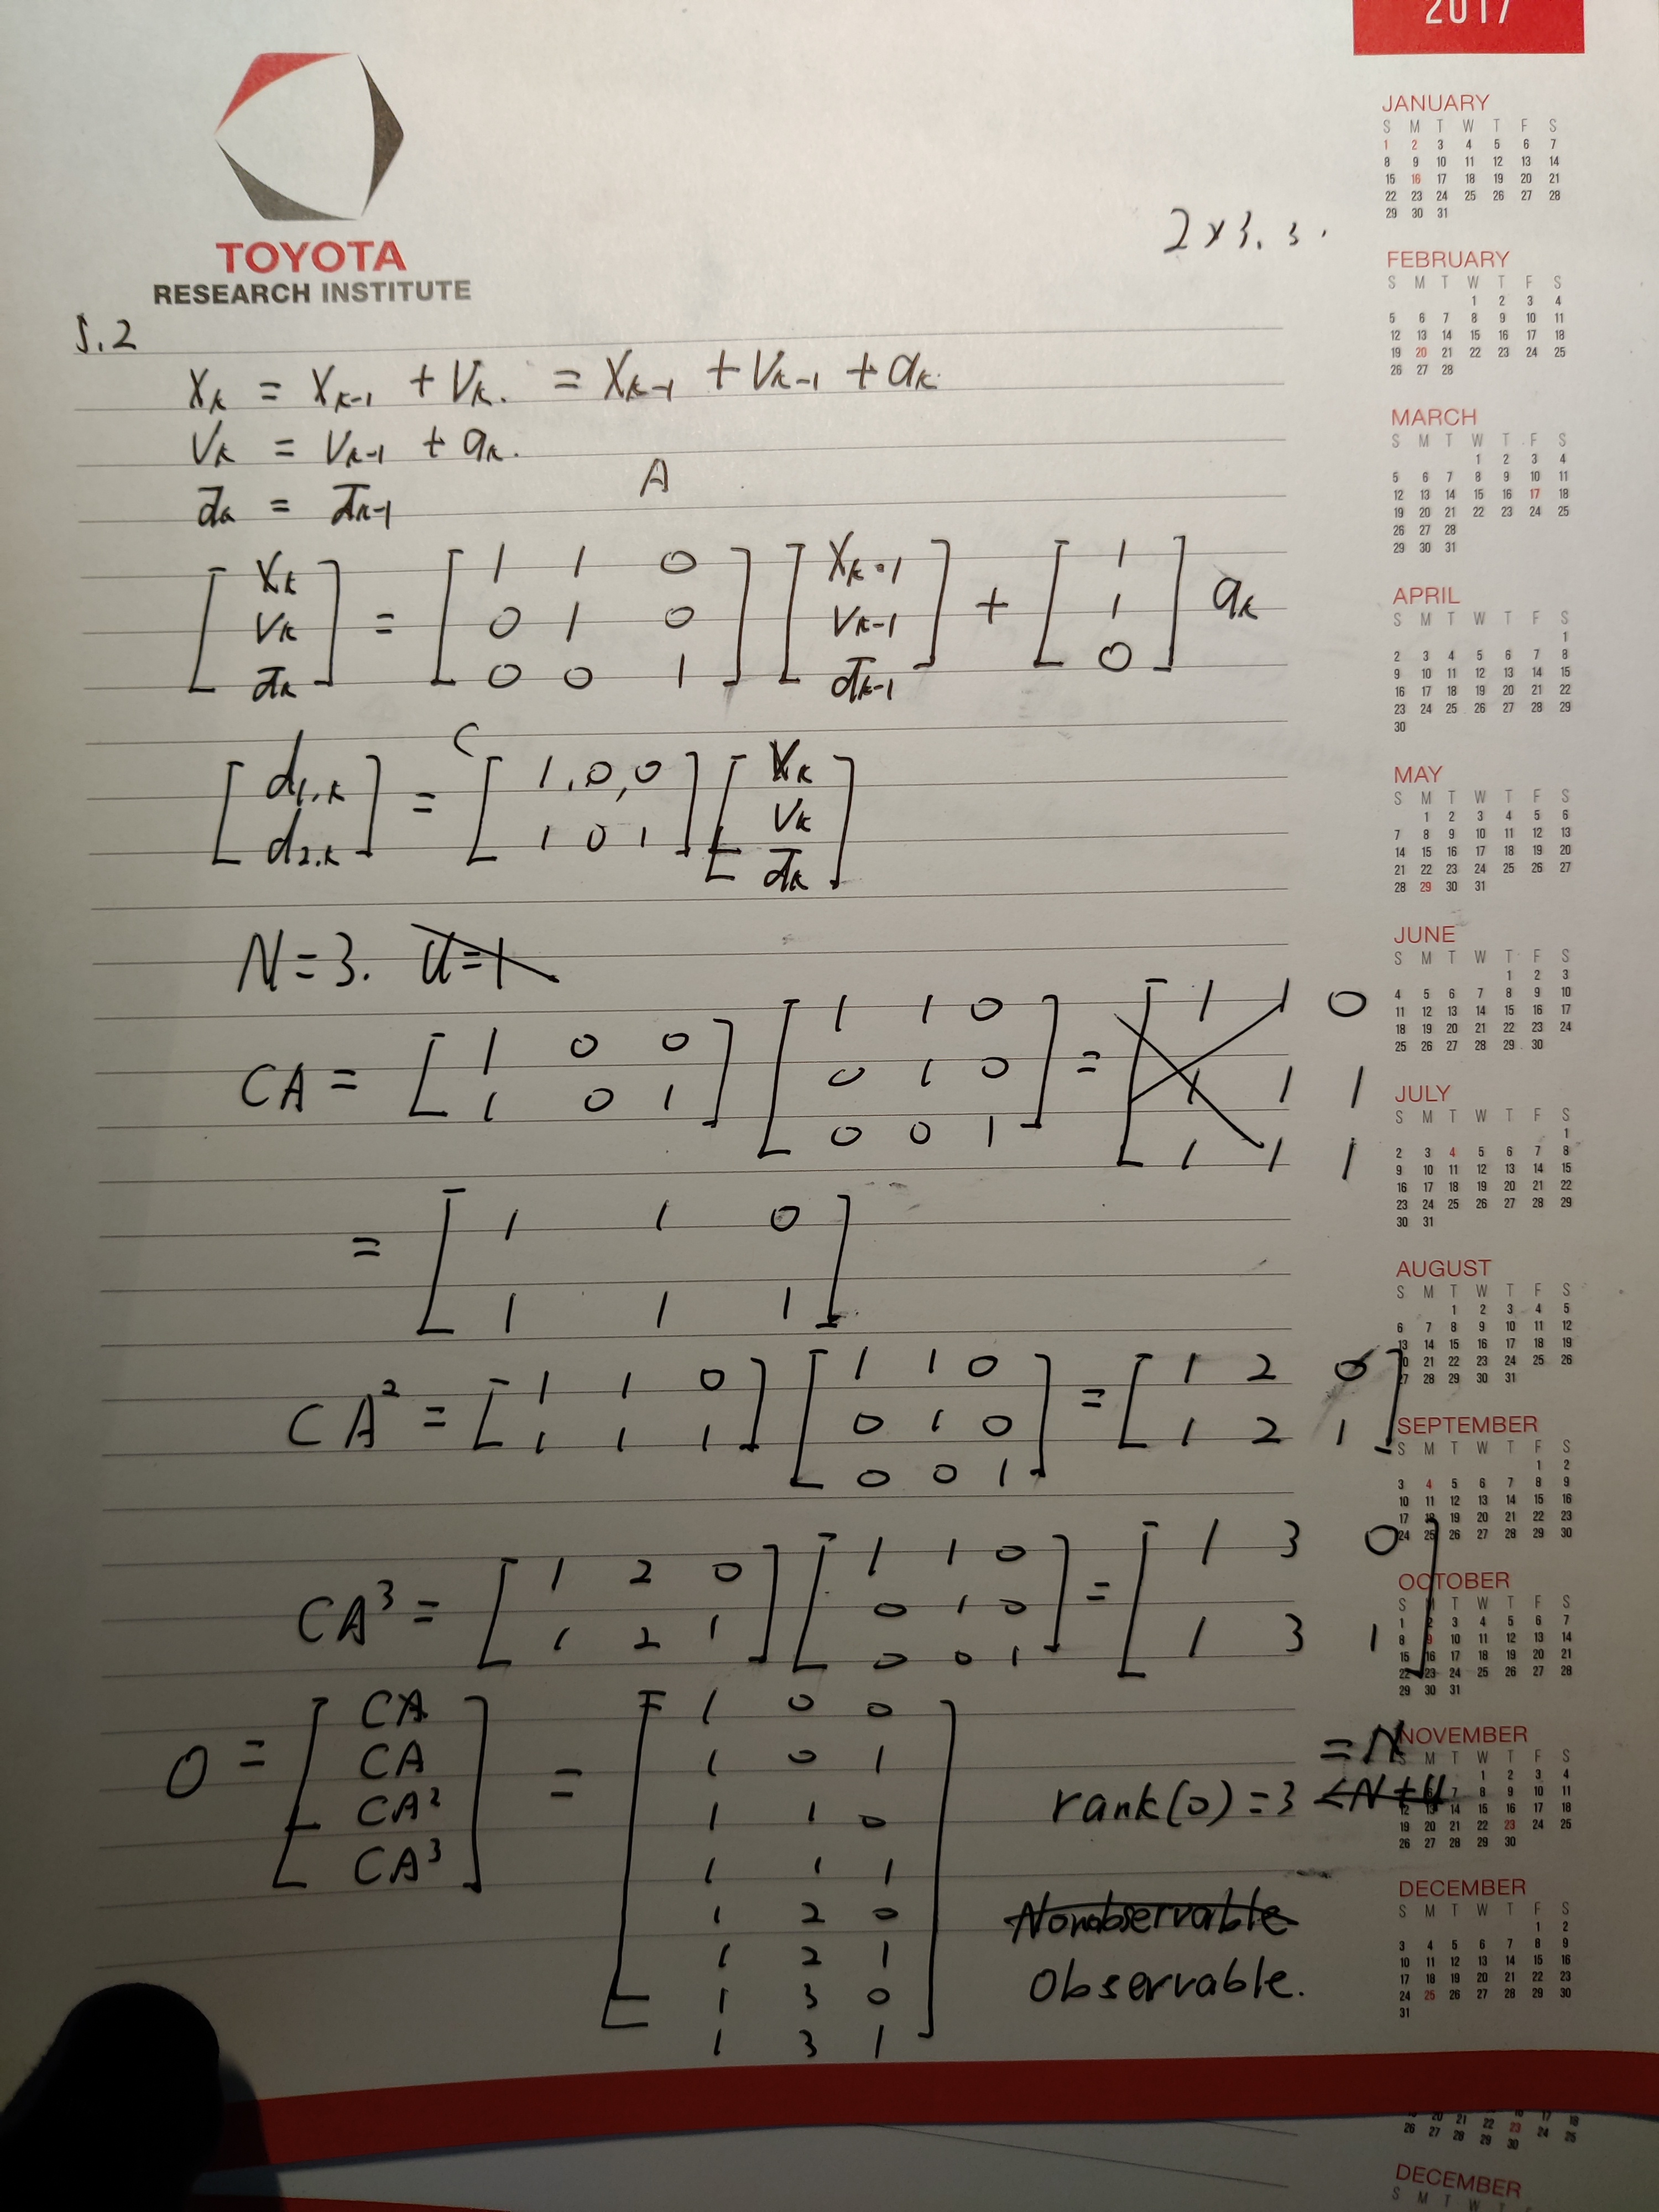 2017
TOYOTA
RESEARCH INSTITUTE
2×3.3.
5.2
Xk = Xk-1 + Vk. = Xk-1 + Vk-1 + ak.
Vk = Vk-1 + ak.
d̄k = d̄k-1
A
[ Xk ] = [ 1 1 0 ] [ Xk-1 ] + [ 1 ] ak
[ Vk ] [ 0 1 0 ] [ Vk-1 ] [ 1 ]
[ d̄k ] [ 0 0 1 ] [ d̄k-1 ] [ 0 ]
C
[ d1,k ] = [ 1,0,0 ] [ Xk ]
[ d2,k ] [ 1 0 1 ] [ Vk ]
[ d̄k ]
N=3. U=1
CA = [ 1 0 0 ] [ 1 1 0 ] = [ 1 1 0
[ 1 0 1 ] [ 0 1 0 ] 1 1 1
[ 0 0 1 ] 1 1 1
= [ 1 1 0 ]
[ 1 1 1 ]
CA² = [ 1 1 0 ] [ 1 1 0 ] = [ 1 2 0 ]
[ 1 1 1 ] [ 0 1 0 ] [ 1 2 1 ]
[ 0 0 1 ]
CA³ = [ 1 2 0 ] [ 1 1 0 ] = [ 1 3 0 ]
[ 1 2 1 ] [ 0 1 0 ] [ 1 3 1 ]
[ 0 0 1 ]
O = [ CA ] = [ 1 0 0 ]
[ CA ] [ 1 0 1 ]
[ CA² ] [ 1 1 0 ]
[ CA³ ] [ 1 1 1 ]
1 2 0
1 2 1
1 3 0
1 3 1
= N
rank(O) = 3 < N+U
Nonobservable
Observable.
JANUARY
S M T W T F S
1 2 3 4 5 6 7
8 9 10 11 12 13 14
15 16 17 18 19 20 21
22 23 24 25 26 27 28
29 30 31
FEBRUARY
S M T W T F S
1 2 3 4
5 6 7 8 9 10 11
12 13 14 15 16 17 18
19 20 21 22 23 24 25
26 27 28
MARCH
S M T W T F S
1 2 3 4
5 6 7 8 9 10 11
12 13 14 15 16 17 18
19 20 21 22 23 24 25
26 27 28
29 30 31
APRIL
S M T W T F S
1
2 3 4 5 6 7 8
9 10 11 12 13 14 15
16 17 18 19 20 21 22
23 24 25 26 27 28 29
30
MAY
S M T W T F S
1 2 3 4 5 6
7 8 9 10 11 12 13
14 15 16 17 18 19 20
21 22 23 24 25 26 27
28 29 30 31
JUNE
S M T W T F S
1 2 3
4 5 6 7 8 9 10
11 12 13 14 15 16 17
18 19 20 21 22 23 24
25 26 27 28 29 30
JULY
S M T W T F S
1
2 3 4 5 6 7 8
9 10 11 12 13 14 15
16 17 18 19 20 21 22
23 24 25 26 27 28 29
30 31
AUGUST
S M T W T F S
1 2 3 4 5
6 7 8 9 10 11 12
13 14 15 16 17 18 19
20 21 22 23 24 25 26
27 28 29 30 31
SEPTEMBER
S M T W T F S
1 2
3 4 5 6 7 8 9
10 11 12 13 14 15 16
17 18 19 20 21 22 23
24 25 26 27 28 29 30
OCTOBER
S M T W T F S
1 2 3 4 5 6 7
8 9 10 11 12 13 14
15 16 17 18 19 20 21
22 23 24 25 26 27 28
29 30 31
NOVEMBER
S M T W T F S
1 2 3 4
7 8 9 10 11
12 13 14 15 16 17 18
19 20 21 22 23 24 25
26 27 28 29 30
DECEMBER
S M T W T F S
1 2
3 4 5 6 7 8 9
10 11 12 13 14 15 16
17 18 19 20 21 22 23
24 25 26 27 28 29 30
31
20 21 22 23 24 25
26 27 28 29 30
DECEMBER
S M T W T F S